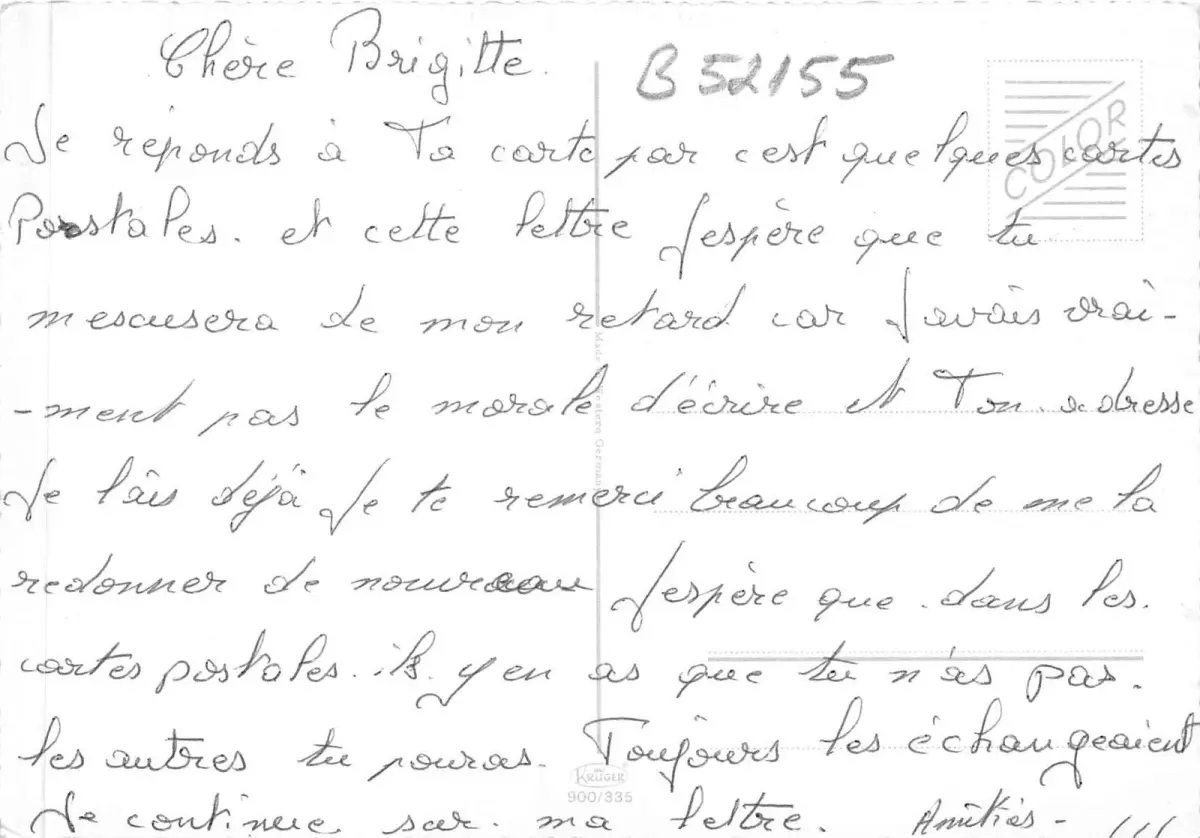 Chère Brigitte.
B 52155
COLOR
Je réponds à Ta carte par c'est quelques cartes
Postales. et cette lettre J'espère que tu
mescusera de mon retard car J'avais vrai-
-ment pas le morale d'écrire et Ton adresse
Je l'ais déjà Je te remerci beaucoup de me la
redonner de nouveau J'espère que dans les
cartes postales. ils y en as que tu n'as pas.
les autres tu pouras. Toujours les échangeaient
Je continue sur ma lettre. Amitiés -
Made in Western Germany
KRÜGER
900/335